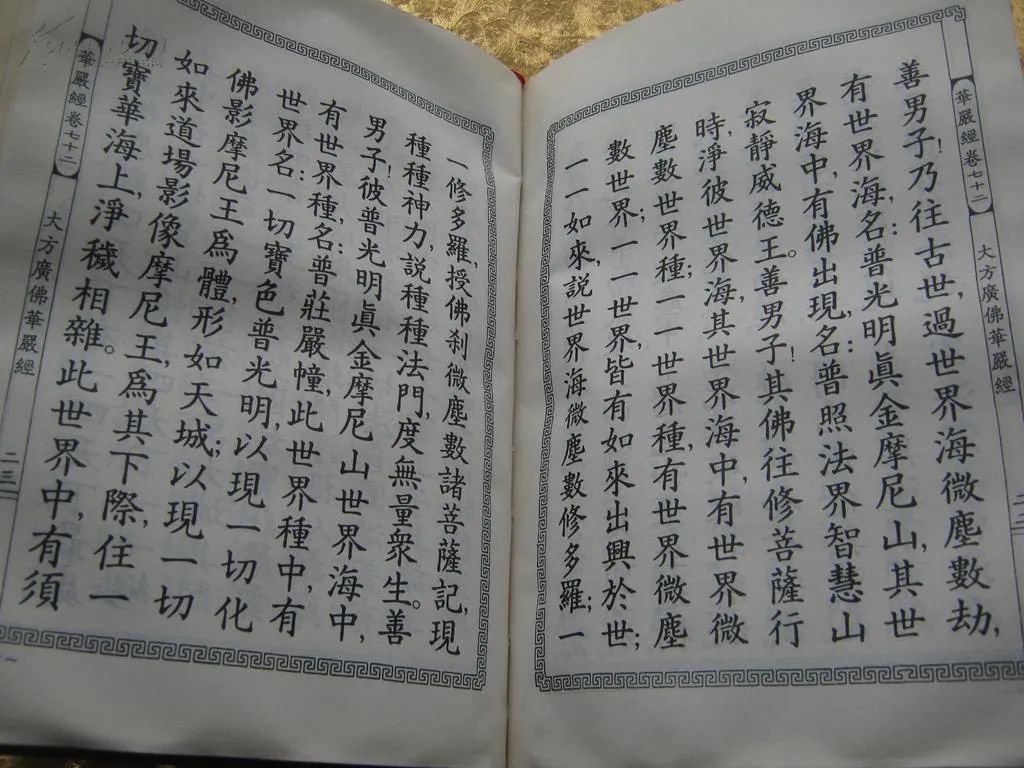 【華嚴經卷七十二】 大方廣佛華嚴經
善男子!乃往古世,過世界海微塵數劫,
有世界海,名:普光明眞金摩尼山,其世
界海中,有佛出現,名:普照法界智慧山
寂靜威德王。善男子!其佛往修菩薩行
時,淨彼世界海,其世界海中,有世界微
塵數世界種;一一世界種,有世界微塵
數世界;一一世界,皆有如來出興於世;
一一如來,說世界海微塵數修多羅;一
一修多羅,授佛刹微塵數諸菩薩記,現
種種神力,說種種法門,度無量衆生。善
男子!彼普光明眞金摩尼山世界海中,
有世界種,名:普莊嚴幢,此世界種中,有
世界名:一切寶色普光明,以現一切化
佛影摩尼王爲體,形如天城;以現一切
如來道場影像摩尼王,爲其下際,住一
切寶華海上,淨穢相雜。此世界中,有須
【華嚴經卷七十二】 大方廣佛華嚴經 二三